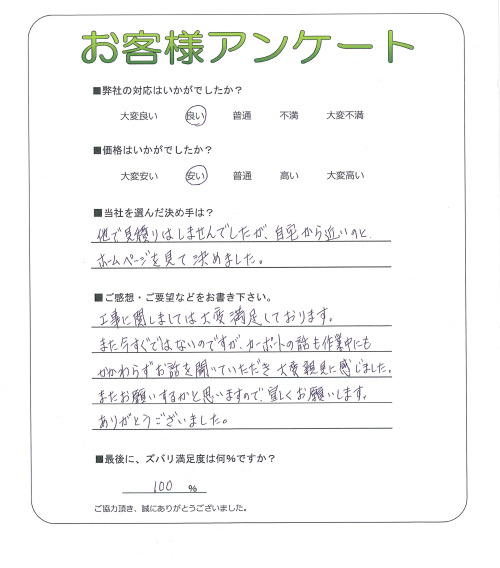 お客様アンケート
■弊社の対応はいかがでしたか？
大変良い 良い 普通 不満 大変不満
■価格はいかがでしたか？
大変安い 安い 普通 高い 大変高い
■当社を選んだ決め手は？
他で見積りはしませんでしたが、自宅から近いのと、
ホームページを見て決めました。
■ご感想・ご要望などをお書き下さい。
工事に関しましては大変満足しております。
また今すぐではないのですが、カーポートの話も作業中にも
かかわらずお話を聞いていただき大変親身に感じました。
またお願いするかと思いますので、宜しくお願いします。
ありがとうございました。
■最後に、ズバリ満足度は何％ですか？
100 ％
ご協力頂き、誠にありがとうございました。